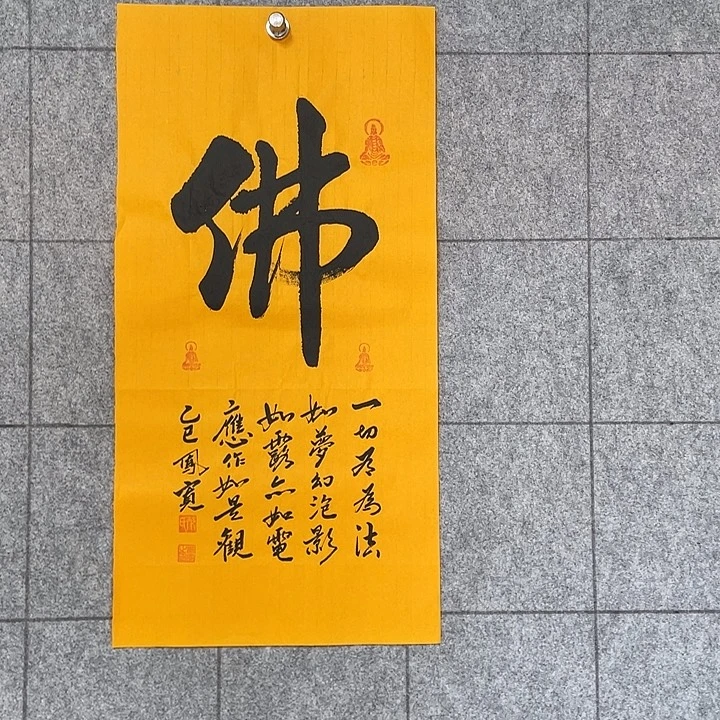 佛
一切有為法
如夢幻泡影
如露亦如電
應作如是觀
乙巳鳳寶